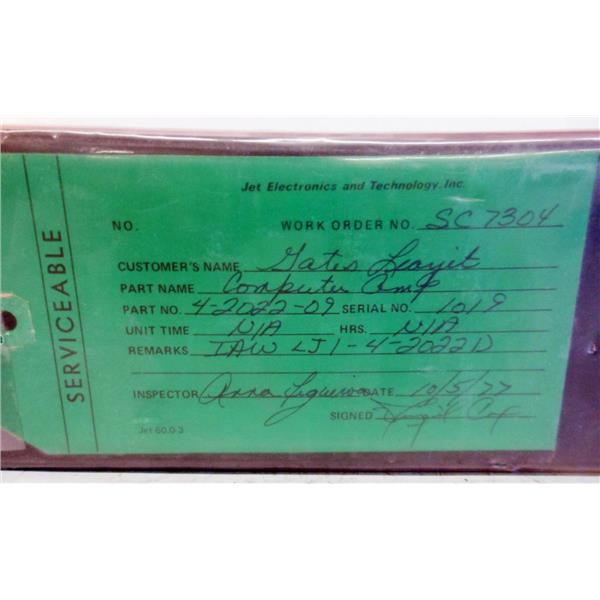 Jet Electronics and Technology, Inc.
NO. WORK ORDER NO. SC 7304
SERVICEABLE
CUSTOMER'S NAME Gates Learjet
PART NAME Computer Amp
PART NO. 4-2022-09 SERIAL NO. 1019
UNIT TIME N/A HRS. N/A
REMARKS IAW LJ1-4-2022D
INSPECTOR Anna Figueroa DATE 10/5/77
SIGNED
Jet 60.0-3